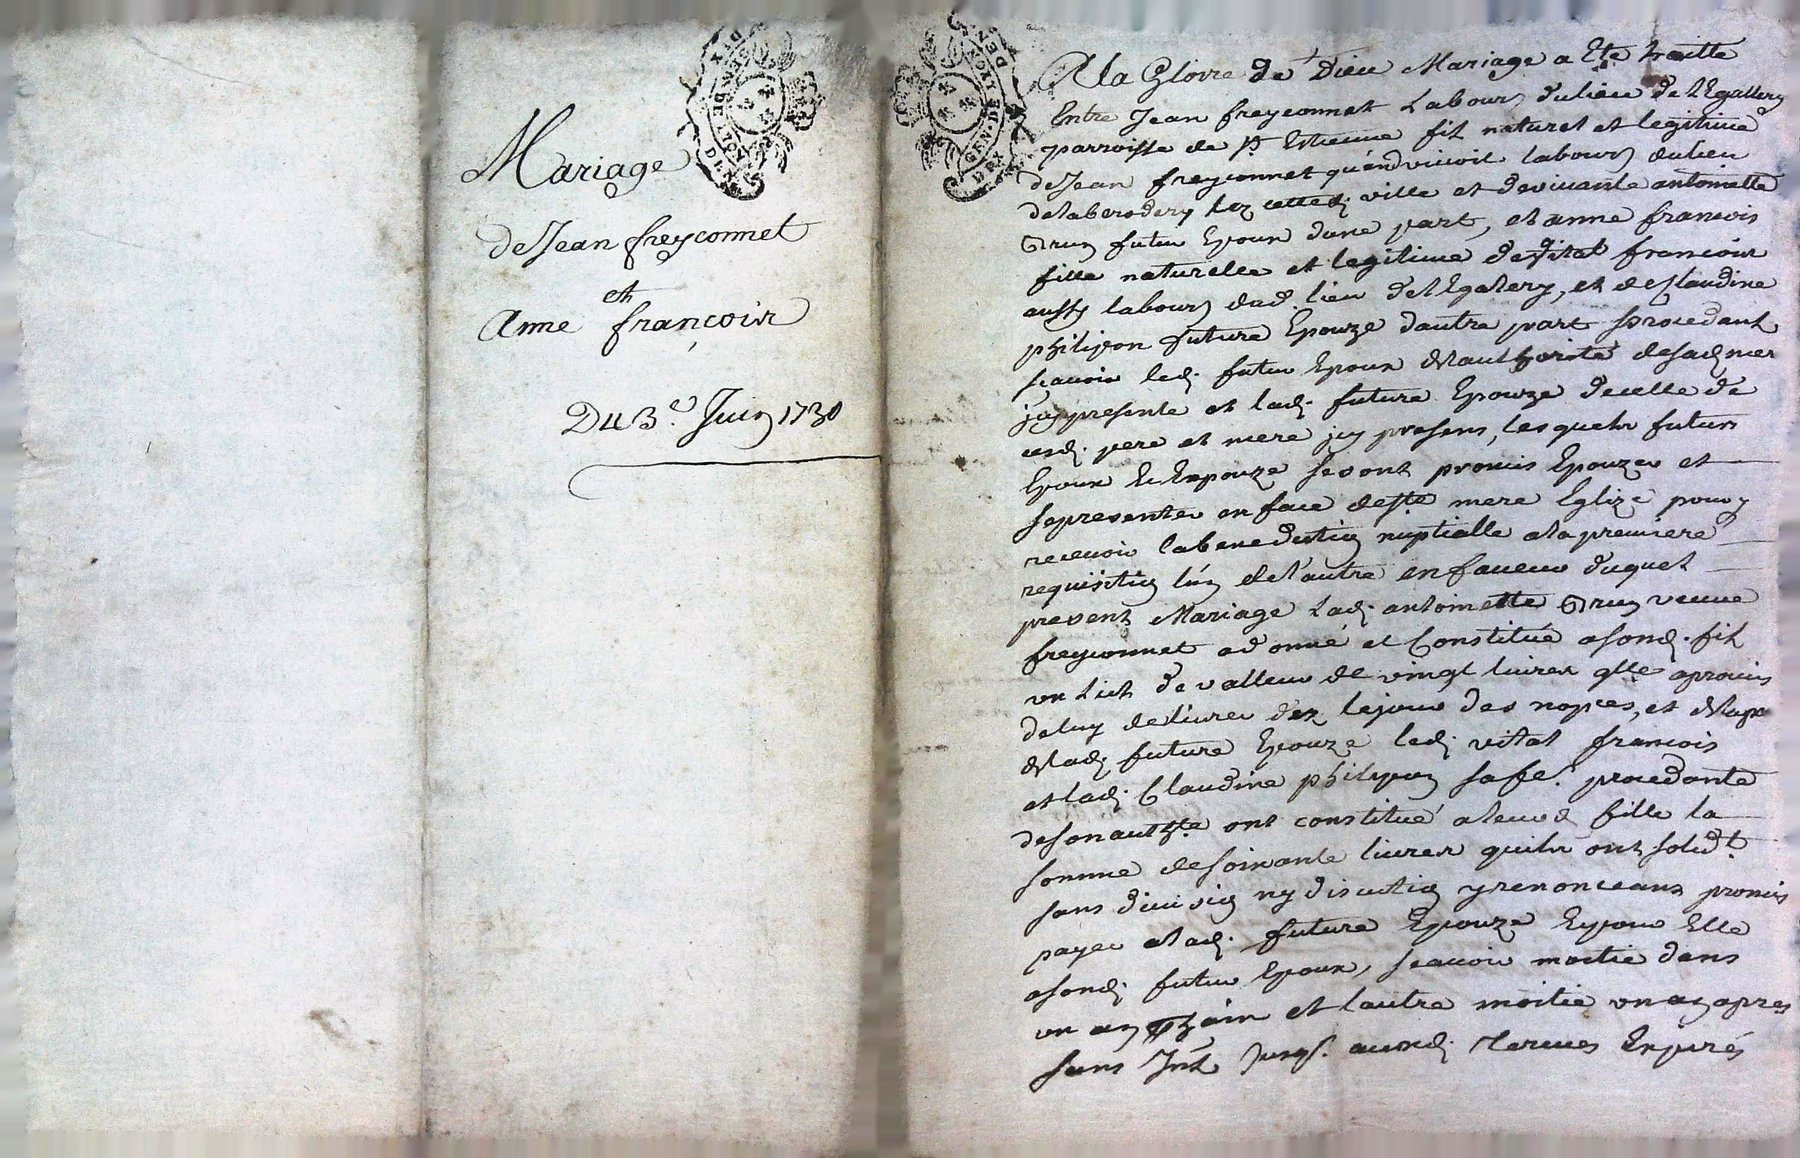 Mariage
de Jean freyconnet
et
Anne françois
Du 3.e Juin 1730
A la Gloire de Dieu Mariage a Ete traitte
Entre Jean freyconnet Labour dulieu de l'Egallery
parroisse de St Estienne fil naturel et legitime
de Jean freyconnet quand vivoit labour dulieu
delaberodery lez cette ville et devivante antoinette
Grun futur Epoux dune part, et anne francois
fille naturelle et legitime de vital francois
aussy labour dud lieu del'Egalery, et de Claudine
philipon future Epouze dautre part procedant
scavoir led. futur Epoux de lauthorite desad. mere
icy presente et lad. future Epouze decelle de
cesd. pere et mere icy presens, lesquels futurs
Epoux et Expouze se sont promis Epouzer et
sepresenter enface de ste mere Eglize pour y
recevoir labenediction nuptialle ala premiere
requisition l'un de l'autre en faveur duquel
present Mariage Lad. antoinette Grun veuve
freyconnet adonné et Constitué asond. fil
un Lict de valleur de vingt livres qlle apromis
deluy delivrer dez lejour des nopces, et delapt
delad. future Epouze led. vital francois
et lad. Claudine philipon safe. procedante
desonauthte ont constitué aleurd fille la
somme desoixante livres quils ont solidt.
sans division ny discution yrenonceans promis
payer alad. future Epouze Epour Elle
asond. futur Epoux, scavoir moitie dans
un an et lautre moitie un an apres
sans Int Jusqs. auxd. termes Enjurés